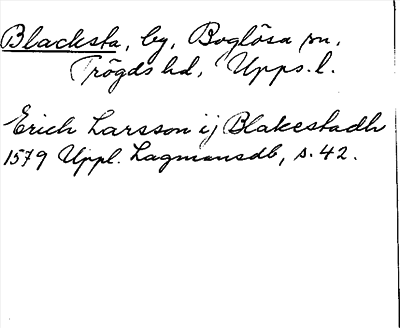 Blacksta, by, Boglösa sn,
Trögds hd, Upps. l.
Erich Larsson ij Blakestadh
1579 Uppl. Lagmansdb, s. 42.